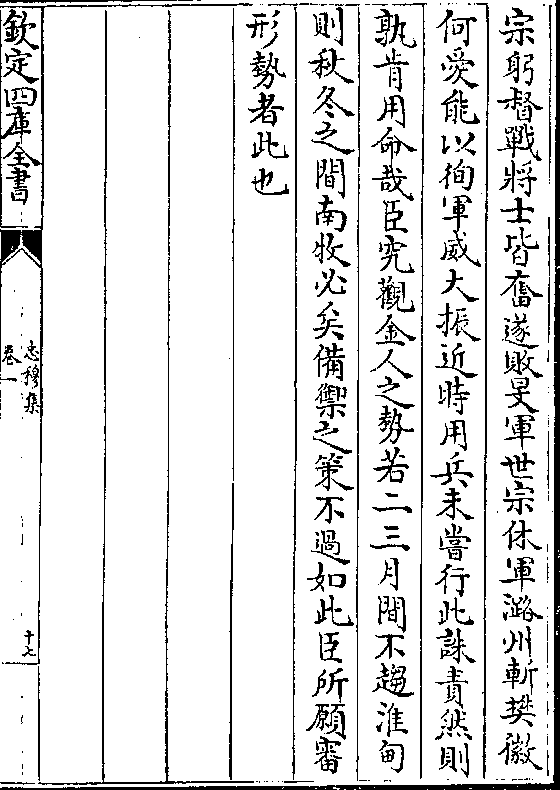 宗躬督戰將士皆奮遂敗旻軍世宗休軍潞州斬樊徽
何愛能以徇軍威大振近時用兵未嘗行此誅責然則
孰肯用命哉臣究觀金人之勢若二三月間不趨淮甸
則秋冬之間南牧必矣備禦之策不過如此臣所願審
形勢者此也
欽定四庫全書
忠穆集
卷一
十七